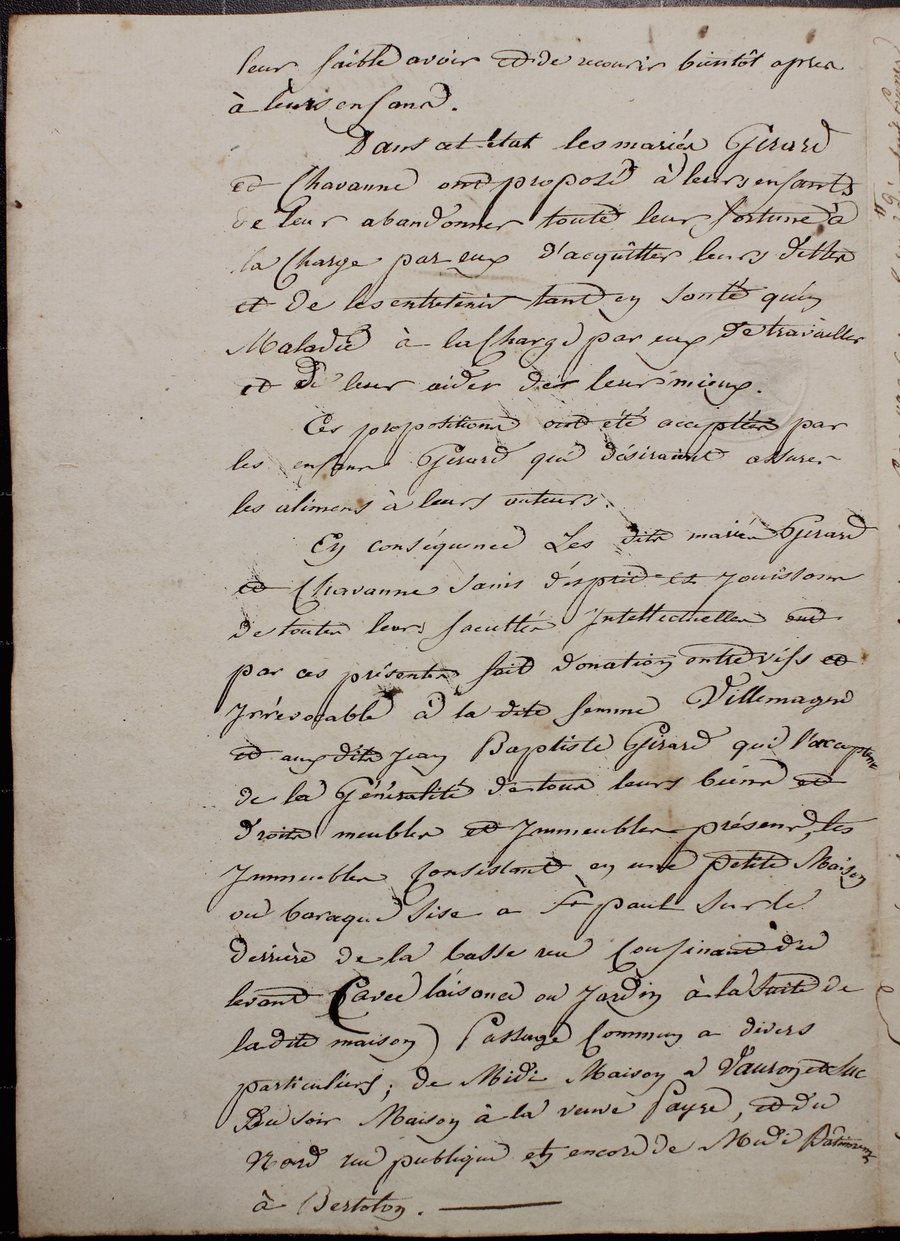 leur faible avoir et de recourir bientôt apres
à leurs enfans.
Dans cet état les mariés Girard
et Chavanne ont proposé à leurs enfants
de leur abandonner toute leur fortune à
la Charge par eux d'acquitter leurs dettes
et de les entretenir tant en santé qu'en
Maladie à la Charge par eux de travailler
et de leur aider de leur mieux.
Ces propositions ont été acceptées par
les enfans Girard qui désiraient assurer
les alimens à leurs auteurs.
En conséquence Les dits mariés Girard
et Chavanne sains d'esprit et jouissans
de toutes leurs facultés Intellectuelles ont
par ces présentes fait donation entre vifs et
Irrévocable à la dite femme Villemagne
et aux dits jean Baptiste Girard qui l'acceptent
de la Généralité de tous leurs biens et
droits meubles et Immeubles présens, les
Immeubles Consistant en une petite Maison
ou baraque sise a St paul sur le
derrière de la basse rue Confinant du
levant (avec l'aisance ou jardin à la suite de
la dite maison) Passage Commun a divers
particuliers; de Midi Maison a et Luc
Du soir Maison à la veuve Payre, et du
Nord rue publique et encore de Midi Bâtiment
à Bertolon.